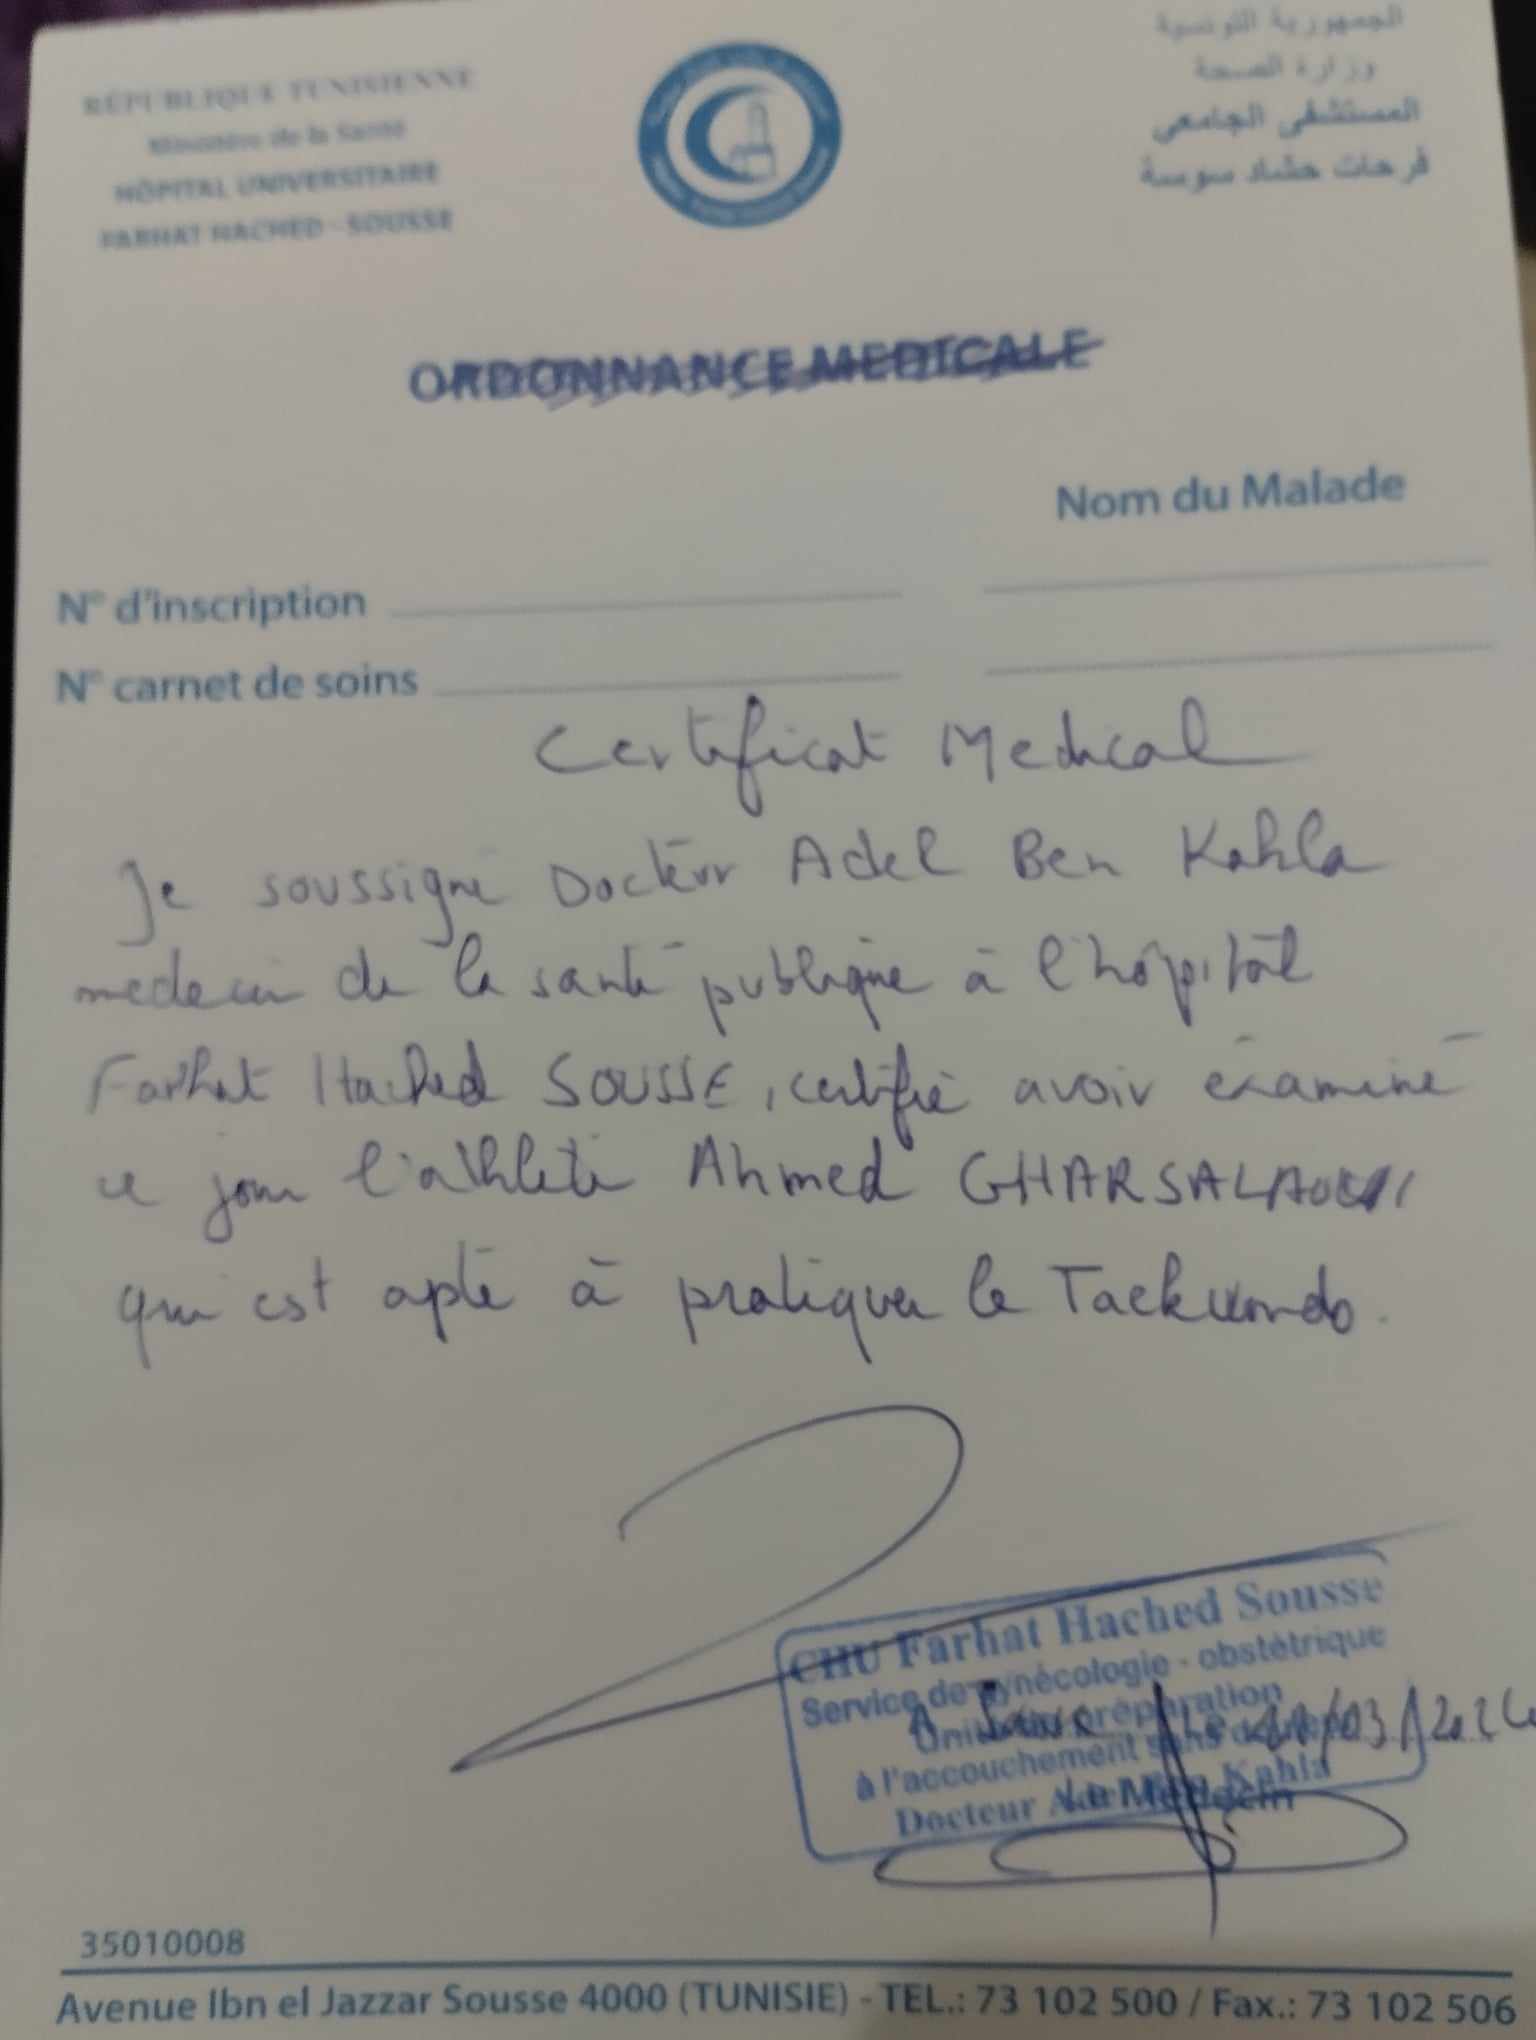 RÉPUBLIQUE TUNISIENNE
Ministère de la Santé
HÔPITAL UNIVERSITAIRE
FARHAT HACHED - SOUSSE
الجمهورية التونسية
وزارة الصحة
المستشفى الجامعي
فرحات حشاد سوسة
ORDONNANCE MEDICALE
Nom du Malade
N° d'inscription
N° carnet de soins
Certificat Medical
Je soussigné Docteur Adel Ben Kahla
medecin de la santé publique à l'hôpital
Farhat Hached SOUSSE, certifie avoir examiné
ce jour l'athlète Ahmed GHARSALAOUI
qui est apte à pratiquer le Taekwondo.
CHU Farhat Hached Sousse
Service de gynécologie - obstétrique
Unité de préparation
à l'accouchement sans
Docteur Adel Ben Kahla
A Sousse, le /03/202
Le Médecin
35010008
Avenue Ibn el Jazzar Sousse 4000 (TUNISIE) - TEL.: 73 102 500 / Fax.: 73 102 506